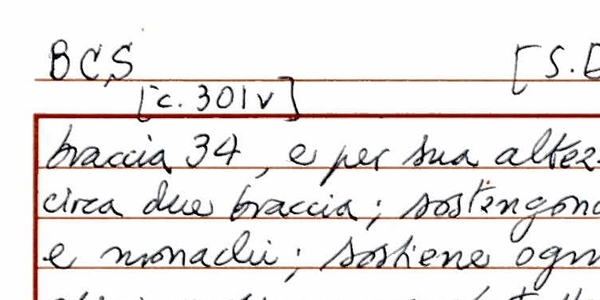 BCS [S.
[c. 301v]
braccia 34, e per sua altez-
circa due braccia; sostengono
e monachi; sostiene ogn